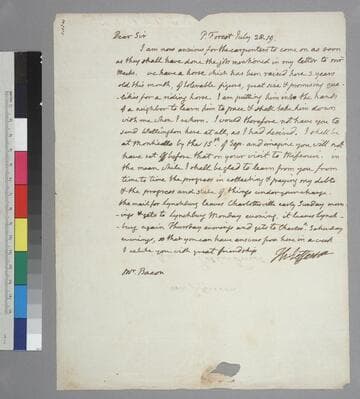 Dear Sir P. Forest July 28. 19.
I am now anxious for the carpenters to come on as soon
as they shall have done the jobs mentioned in my letter to
Meeks. we have a horse which has been raised here 3. years
old this month, of tolerable figure, great size & promising qua-
-lities for a riding horse. I am putting him into the hands
of a neighbor to learn him to pace & shall take him down
with me when I return. I would therefore not have you to
send Wellington here at all, as I had desired. I shall be
at Monticello by the 15th. of Sep. and imagine you will not
have set off before that on your visit to Missouri. in
the mean while I shall be glad to learn from you from
time to time the progress in collecting & paying my debts
& the progress and state of things under your charge.
the mail for Lynchburg leaves Charlottesville early Sunday morn-
-ings & gets to Lynchburg Monday evening. it leaves Lynch-
-burg again Thursday evenings and gets to Charlesv. Saturday
evenings, so that you can have answers from here in a week
I salute you with great friendship
Th: Jefferson
Mr. Bacon